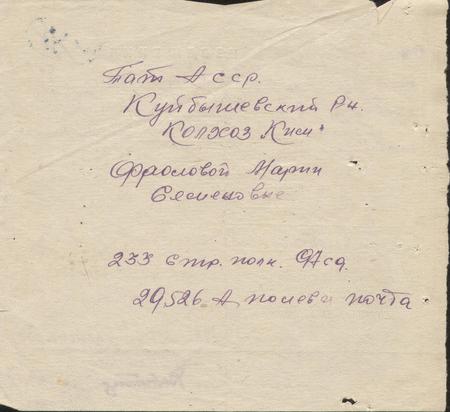 Тат АССР.
Куйбышевский Рн.
Колхоз Ким
Фроловой Марии
Семеновые
233 стр. полк. 97 сд.
29526-А полева почта